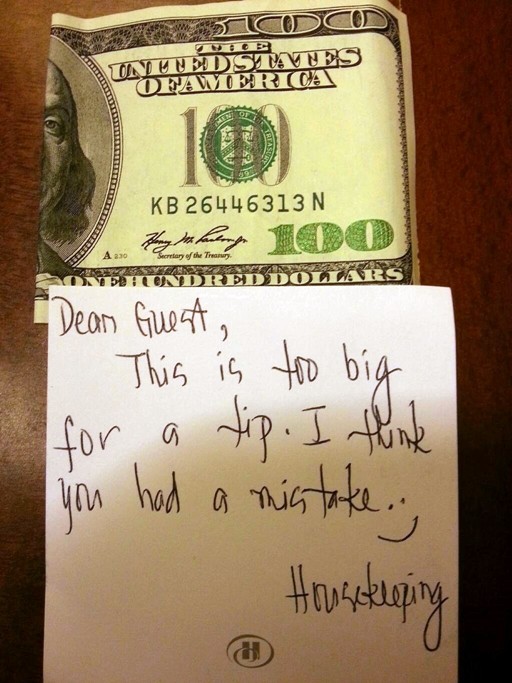 100
THE
UNITED STATES
OF AMERICA
100
KB 26446313 N
Secretary of the Treasury.
100
A
ONE HUNDRED DOLLARS
Dear Guest,
This is too big
for a tip. I think
you had a mistake..
Housekeeping
H